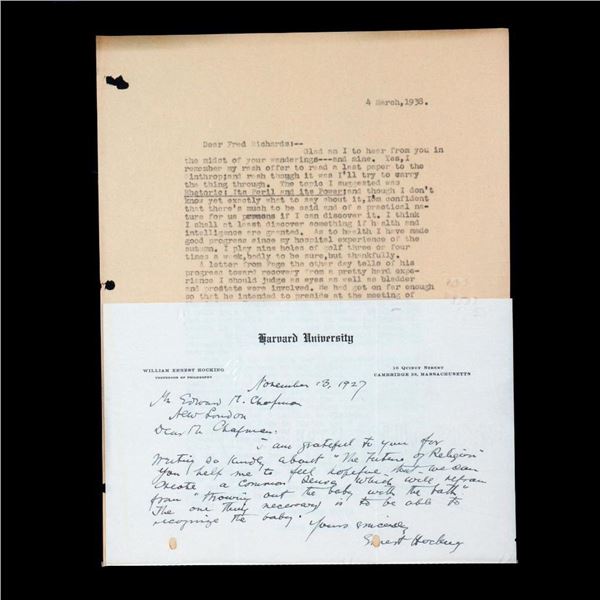 4 March,1938.
Dear Fred Richards:--
Glad am I to hear from you in
the midst of your wanderings---and mine. Yes,I
remember my rash offer to read a last paper to the
Winthrop;and rash though it was I'll try to carry
the thing through. The topic I suggested was
Rhetoric: Its Peril and its Power;and though I don't
know yet exactly what to say about it,I am confident
that there's much to be said and of a practical na-
ture for us persons if I can discover it. I think
I shall at least discover something if health and
intelligence are granted. As to health I have made
good progress since my hospital experience of the
autumn. I play nine holes of golf three or four
times a week,badly to be sure,but thankfully.
A letter from Page the other day tells of his
progress toward recovery from a pretty hard expe-
rience I should judge as eyes as well as bladder
and prostate were involved. He had got on far enough
so that he intended to preside at the meeting of
Harvard University
WILLIAM ERNEST HOCKING
PROFESSOR OF PHILOSOPHY
16 QUINCY STREET
CAMBRIDGE 38, MASSACHUSETTS
November 13, 1927
Mr Edward M. Chapman
New London
Dear Mr Chapman:
I am grateful to you for
writing so kindly about "The Future of Religion"
You help me to feel hopeful that we can
create a common sense which will refrain
from "throwing out the baby with the bath"
The one thing necessary is to be able to
recognize the baby.
Yours sincerely
Ernest Hocking